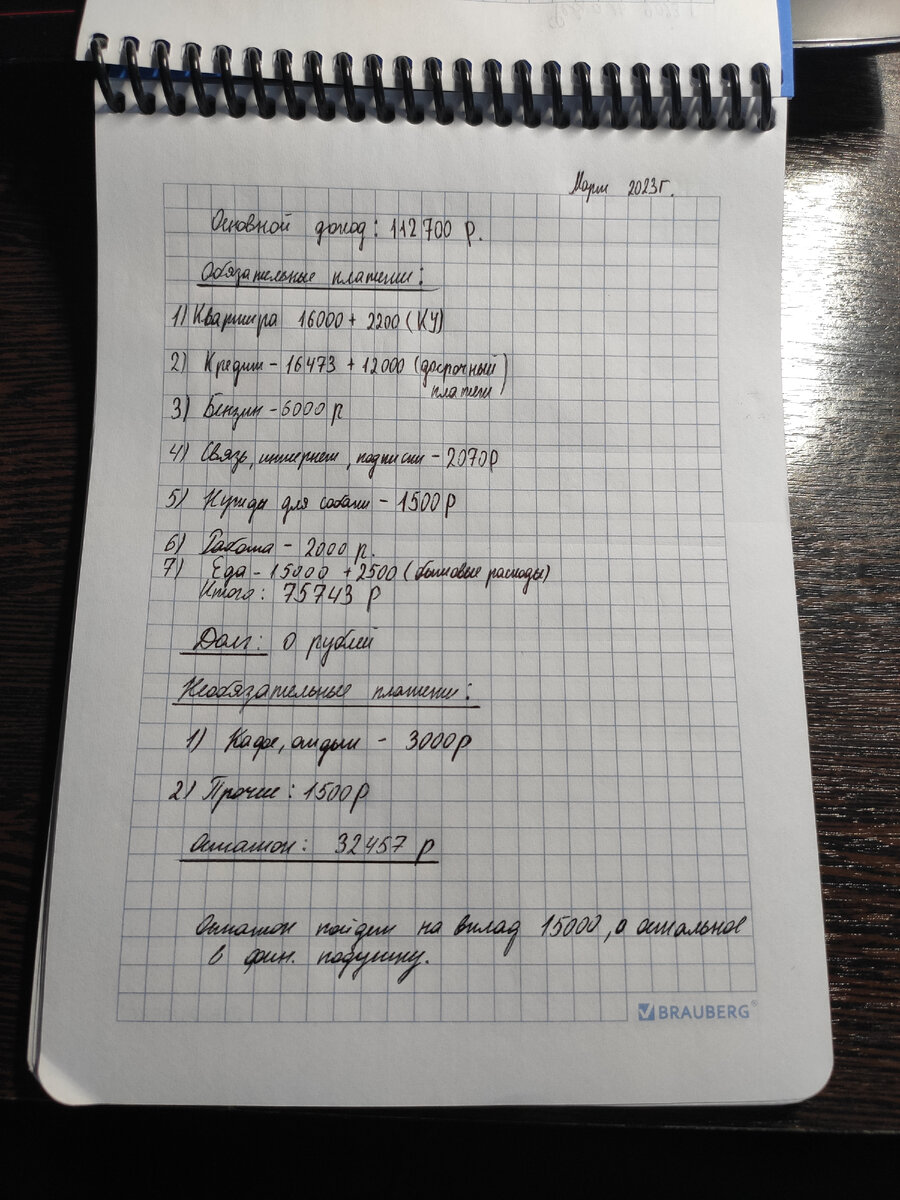 Март 2023г.
Основной доход: 112700 р.
Обязательные платежи:
1) Квартира 16000 + 2200 (КУ)
2) Кредит - 16473 + 12000 (досрочный
платеж)
3) Бензин - 6000 р
4) Связь, интернет, подписки - 2070р
5) Нужды для собаки - 1500р
6) Работа - 2000 р.
7) Еда - 15000 + 2500 (бытовые расходы)
Итого: 75743 р
Долг: 0 рублей
Необязательные платежи:
1) Кафе, отдых - 3000р
2) Прочее: 1500р
Остаток: 32457 р
Остаток пойдет на вклад 15000, а остальное
в фин. подушку.
BRAUBERG®